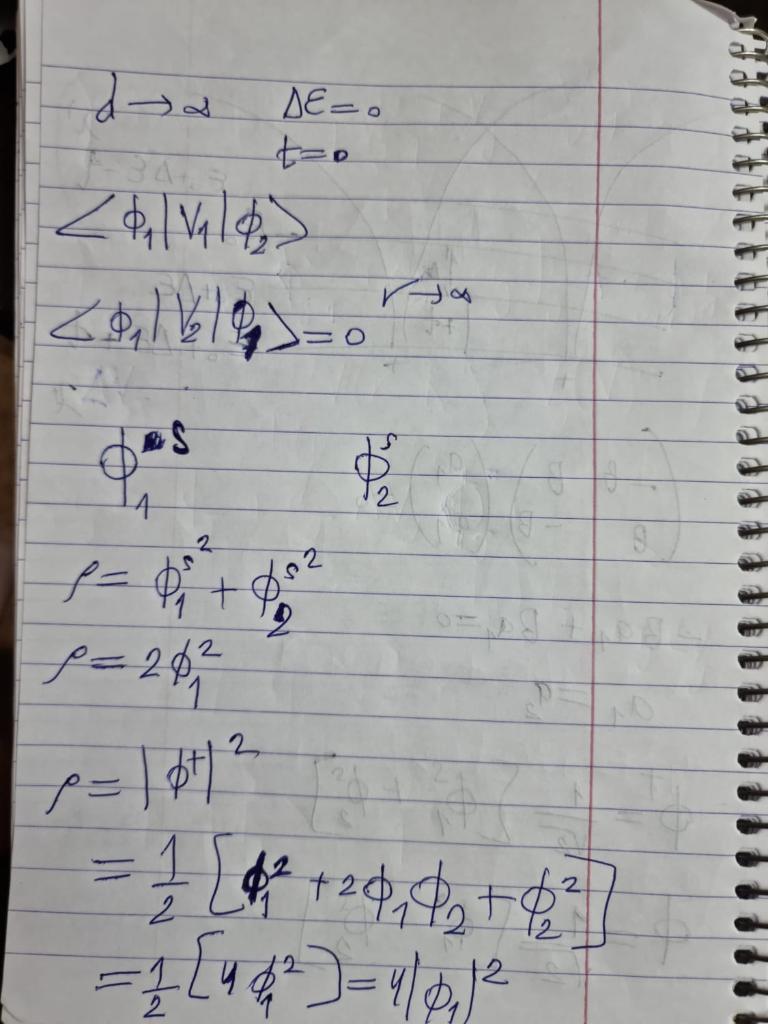 d → ∝ ΔE = 0
t = 0
<ϕ₁|V₁|ϕ₂>
<ϕ₁|V₂|ϕ₁> = 0 r → ∝
ϕ₁ˢ ϕ₂ˢ
ρ = ϕ₁ˢ² + ϕ₂ˢ²
ρ = 2ϕ₁²
ρ = |ϕ⁺|²
= 1/2 [ϕ₁² + 2ϕ₁ϕ₂ + ϕ₂²]
= 1/2 [4ϕ₁²] = 4|ϕ₁|²